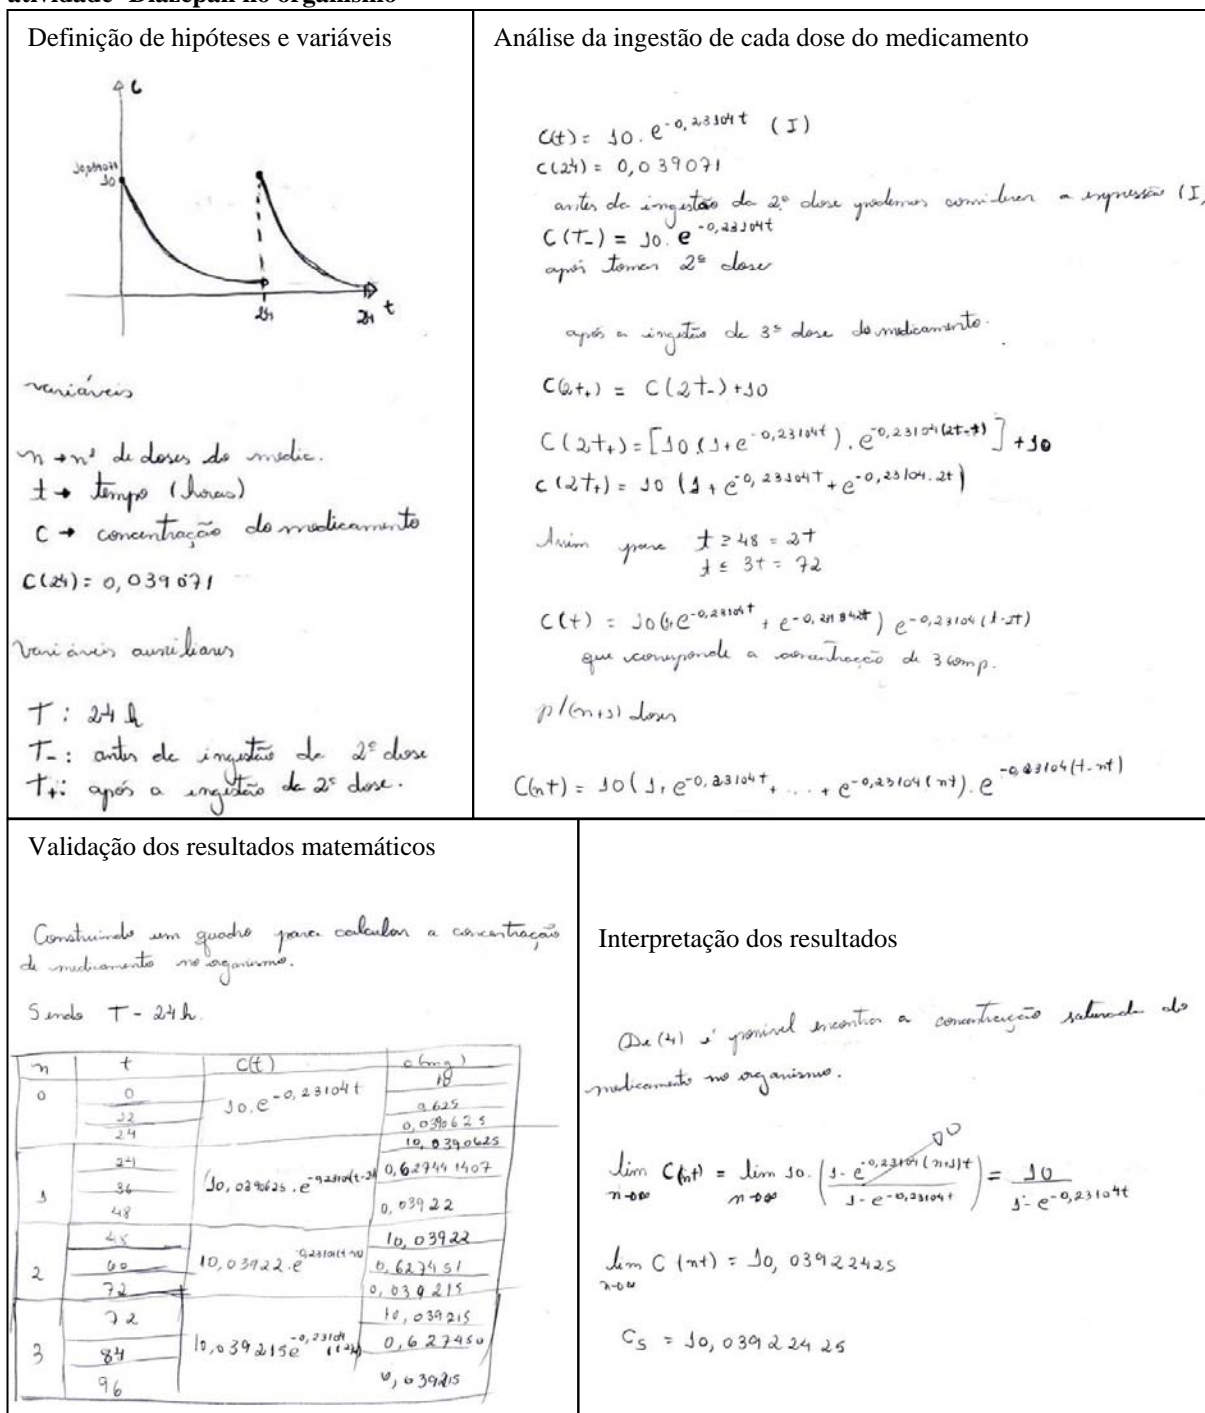 atividade Diazepan no organismo
Definição de hipóteses e variáveis
C
10,039071
10
24
24
t
variáveis
n → nº de doses do medic.
t → tempo (horas)
C → concentração do medicamento
C(24) = 0,039071
Variáveis auxiliares
T : 24 h
T- : antes de ingestão da 2ª dose
T+ : após a ingestão da 2ª dose.
Análise da ingestão de cada dose do medicamento
C(t) = 10. e^-0,23104t (I)
C(24) = 0,039071
antes da ingestão da 2ª dose podemos considerar a expressão (I,
C(T-) = 10. e^-0,23104t
após tomar 2ª dose
após a ingestão de 3ª dose do medicamento.
C(2t+) = C(2t-) + 10
C(2t+) = [10.(1+e^-0,23104t). e^-0,23104(2t-t)] + 10
C(2t+) = 10 (1 + e^-0,23104t + e^-0,23104.2t)
Assim para t ≥ 48 = 2t
t ≤ 3t = 72
C(t) = 10( e^-0,23104t + ) e^-0,23104(t-2t)
que corresponde a concentração de 3 comp.
p/(n+1) doses
C(nt) = 10(1+ e^-0,23104t + ... + e^-0,23104(nt)). e^-0,23104(t-nt)
Validação dos resultados matemáticos
Construindo um quadro para calcular a concentração
de medicamento no organismo.
Sendo T - 24h.
n t C(t) c(mg)
0 0 10.e^-0,23104t 10
12 0,625
24 0,0390625
1 24 10,0390625.e^-0,23104(t-24) 10,0390625
36 0,627441407
48 0,03922
2 48 10,03922.e 10,03922
60 0,627451
72 0,039215
3 72 10,039215e^-0,23104 10,039215
84 0,627450
96 0,039215
Interpretação dos resultados
De (4) é possível encontrar a concentração saturada do
medicamento no organismo.
lim n→∞ C(nt) = lim n→∞ 10. (1 - e^-0,23104(n+1)t / 1 - e^-0,23104t) = 10 / 1 - e^-0,23104t
0
lim n→∞ C(nt) = 10,03922425
Cs = 10,03922425